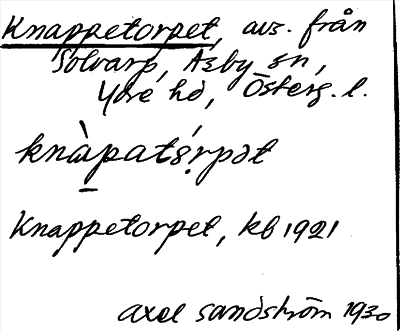 Knappetorpet, avs. från
Solvarp, Asby sn,
Ydre hd, Österg. l.
knàpatśrpət
Knappetorpet, kb 1921
Axel Sandström 1930